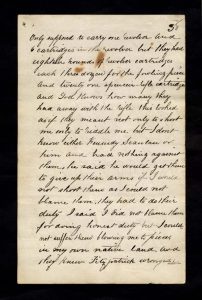 3
only supposed to carry one revolver and
6 cartridges in the revolver but they had
eighteen rounds of revolver cartridges
each three dozen for the fowling piece
and twenty one spencer rifle cartridges
and God knows how many they
had away with the rifle this looked
as if they meant not only to shoot
me only to riddle me but I dont
know either Kennedy Scanlan or
him and had nothing against
them, he said he would get them
to give up their arms if I would
not shoot them as I could not
blame them, they had to do their
duty I said I did not blame them
for doing honest duty but I could
not suffer them blowing me to pieces
in my own native land and
they knew Fitzpatrick